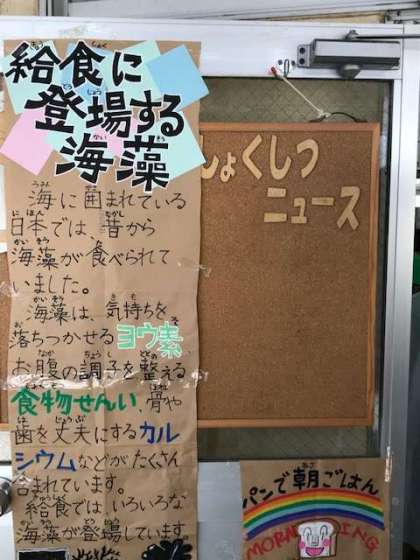 給食に
登場する
海藻
海に囲まれている
日本では、昔から
海藻が食べられて
いました。
海藻は、気持ちを
落ちつかせるヨウ素
お腹の調子を整える
食物せんい、骨や
歯を丈夫にするカル
シウムなどがたくさん
含まれています。
給食ではいろいろな
海藻が登場しています。
しょくしつ
ニュース
パンで朝ごはん
MORNING